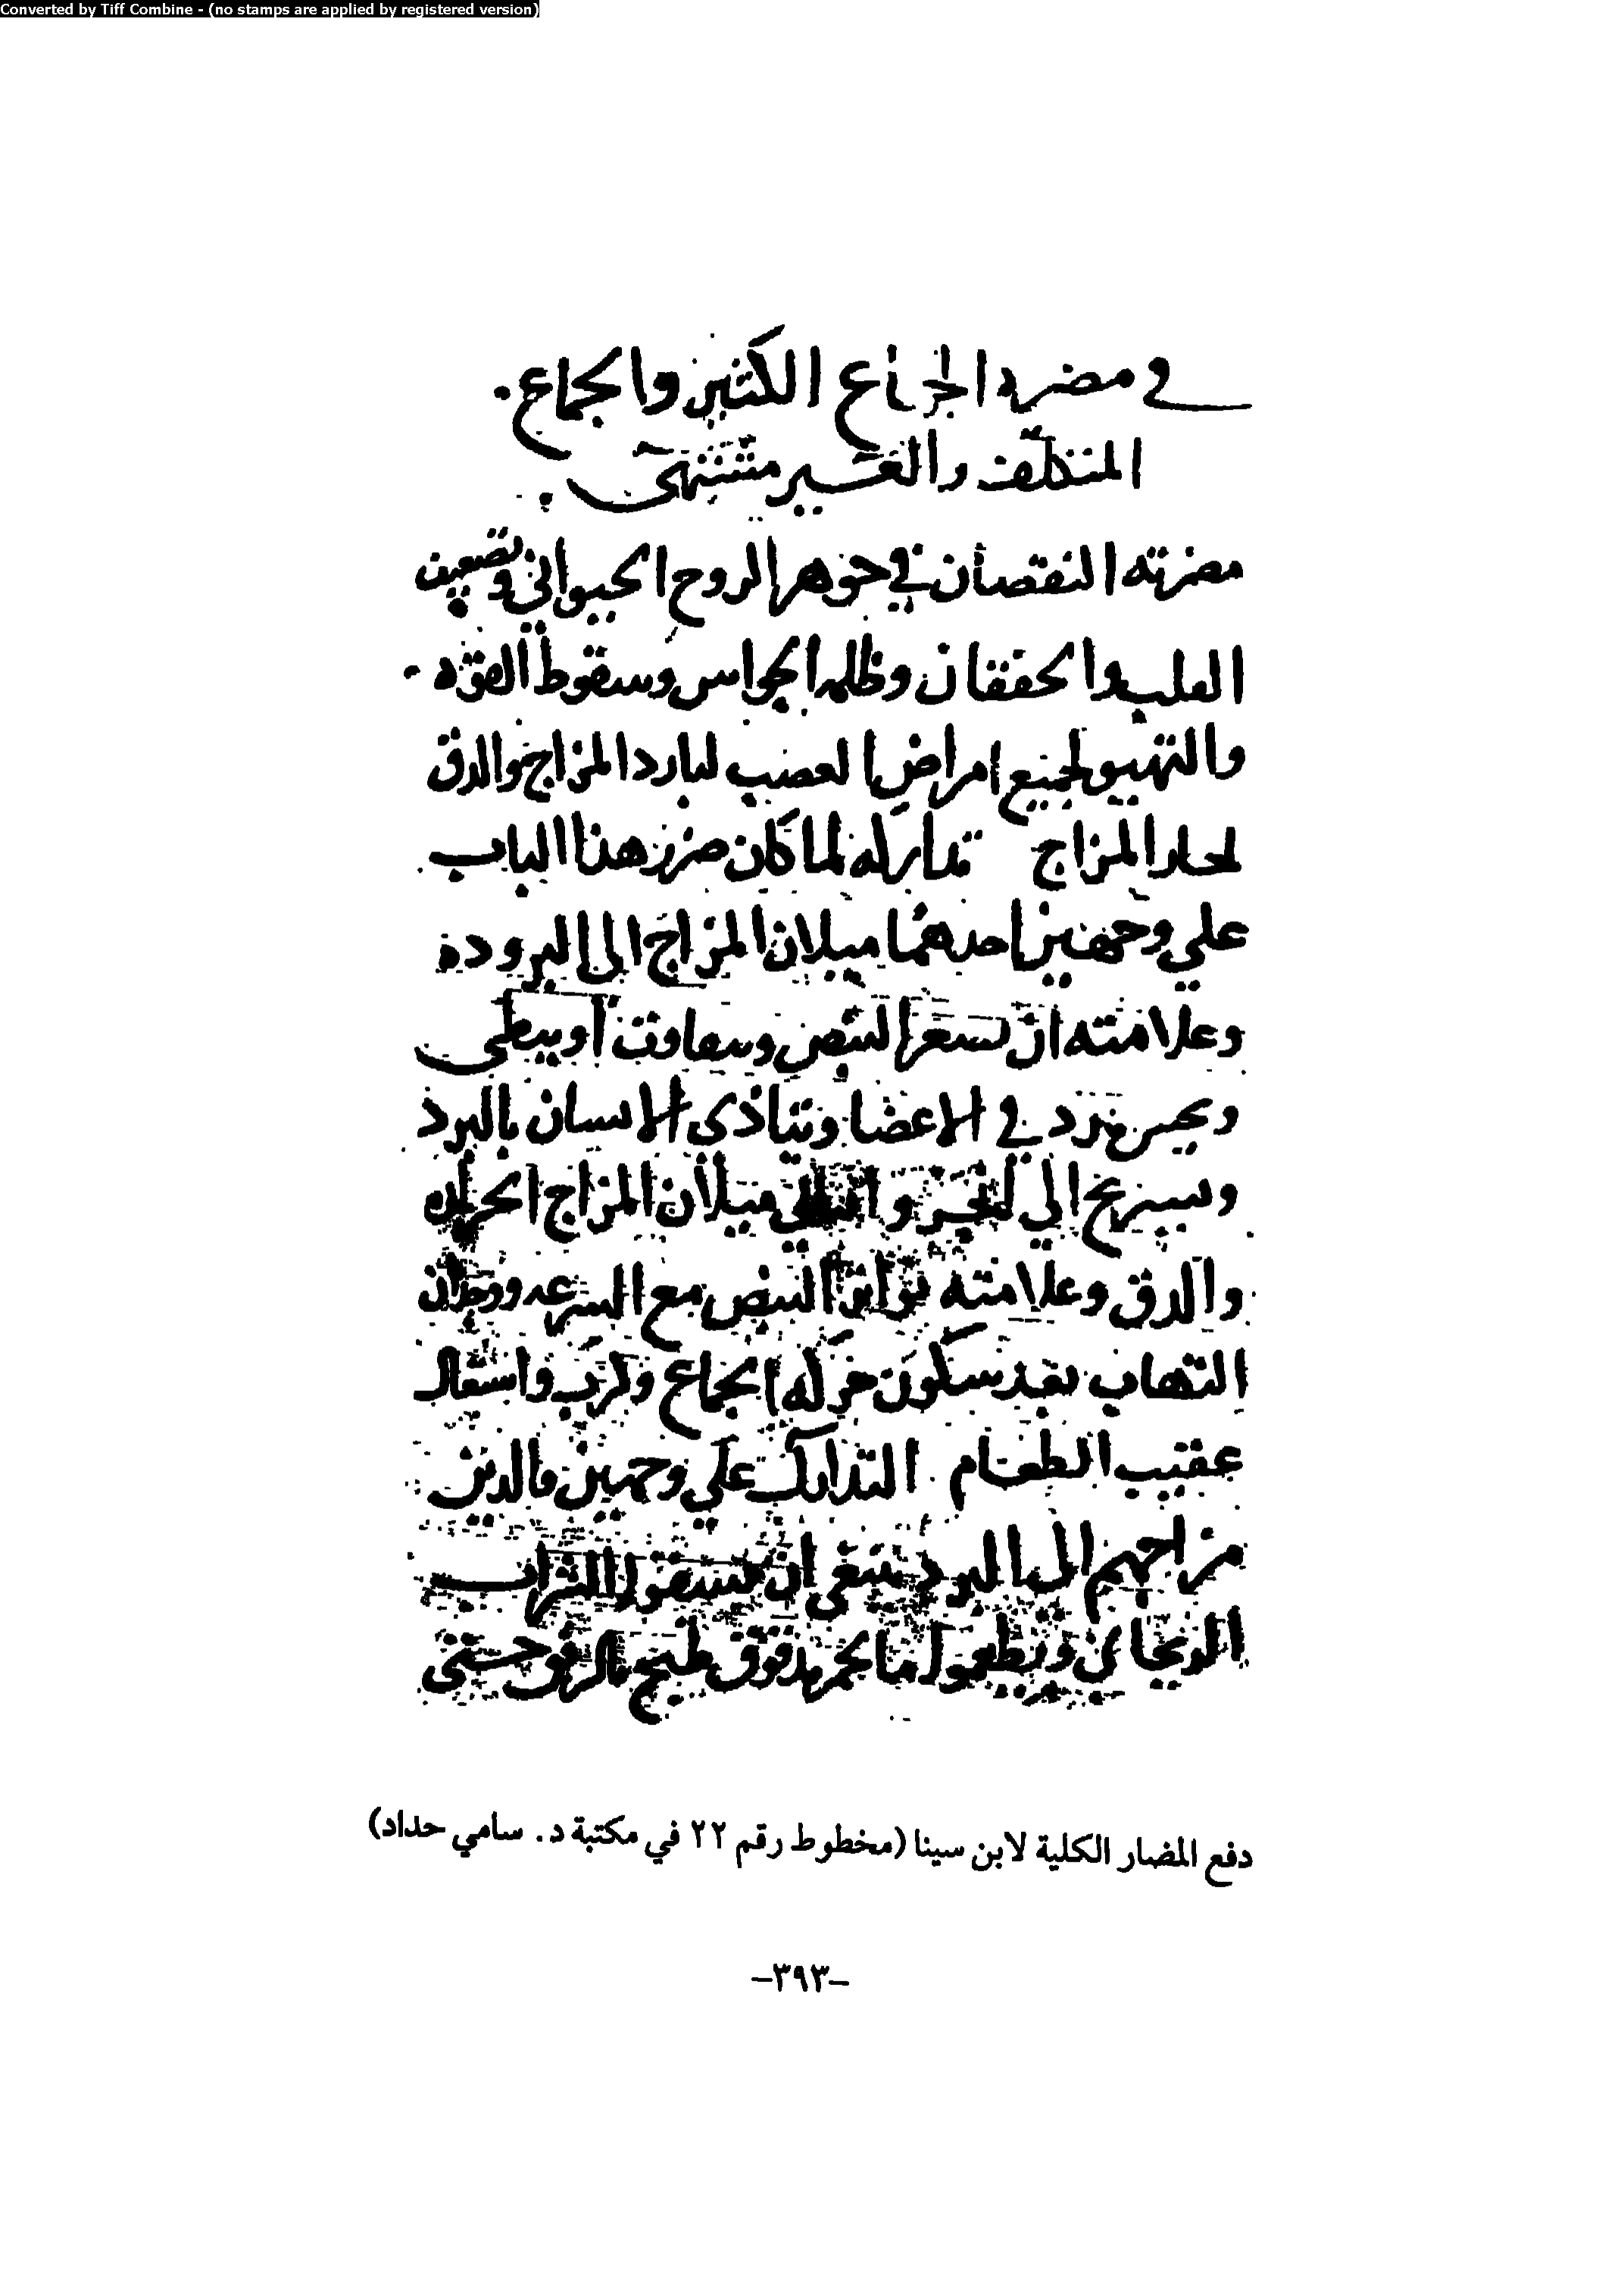 Converted by Tiff Combine - (no stamps are applied by registered version)
في مضره الجماع الكثير والجماع
المتكلف والغير مشتهى
مضرته النقصان في جوهر الروح الحيواني وتضعيف
القلب والخفقان وظلمه الحواس وسقوط القوه
والتهيو لجميع امراض العصب لبارد المزاج والدق
لحار المزاج تداركه لما كان ضرر هذا الباب
علي وجهين احدهما ميلان المزاج الى البروده
وعلامته ان يصغر النبض ويتفاوت او يبطى
ويحس ببرد في الاعضا ويتاذى الانسان بالبرد
ويستريح الي الحر والثاني ميلان المزاج الحراره
والدق وعلامته تواتر النبض مع السرعه ووجدان
التهاب بعد سكون حركه الجماع وكرب واشتعال
عقيب الطعام التدارك علي وجهين فالذين
مزاجهم الى البرد ينبغي ان يسقوا الشراب
الريحاني ويطعموا ما
دفع المضار الكلية لابن سينا (مخطوط رقم ٢٢ في مكتبة د. سامي حداد)
-٣٩٣-